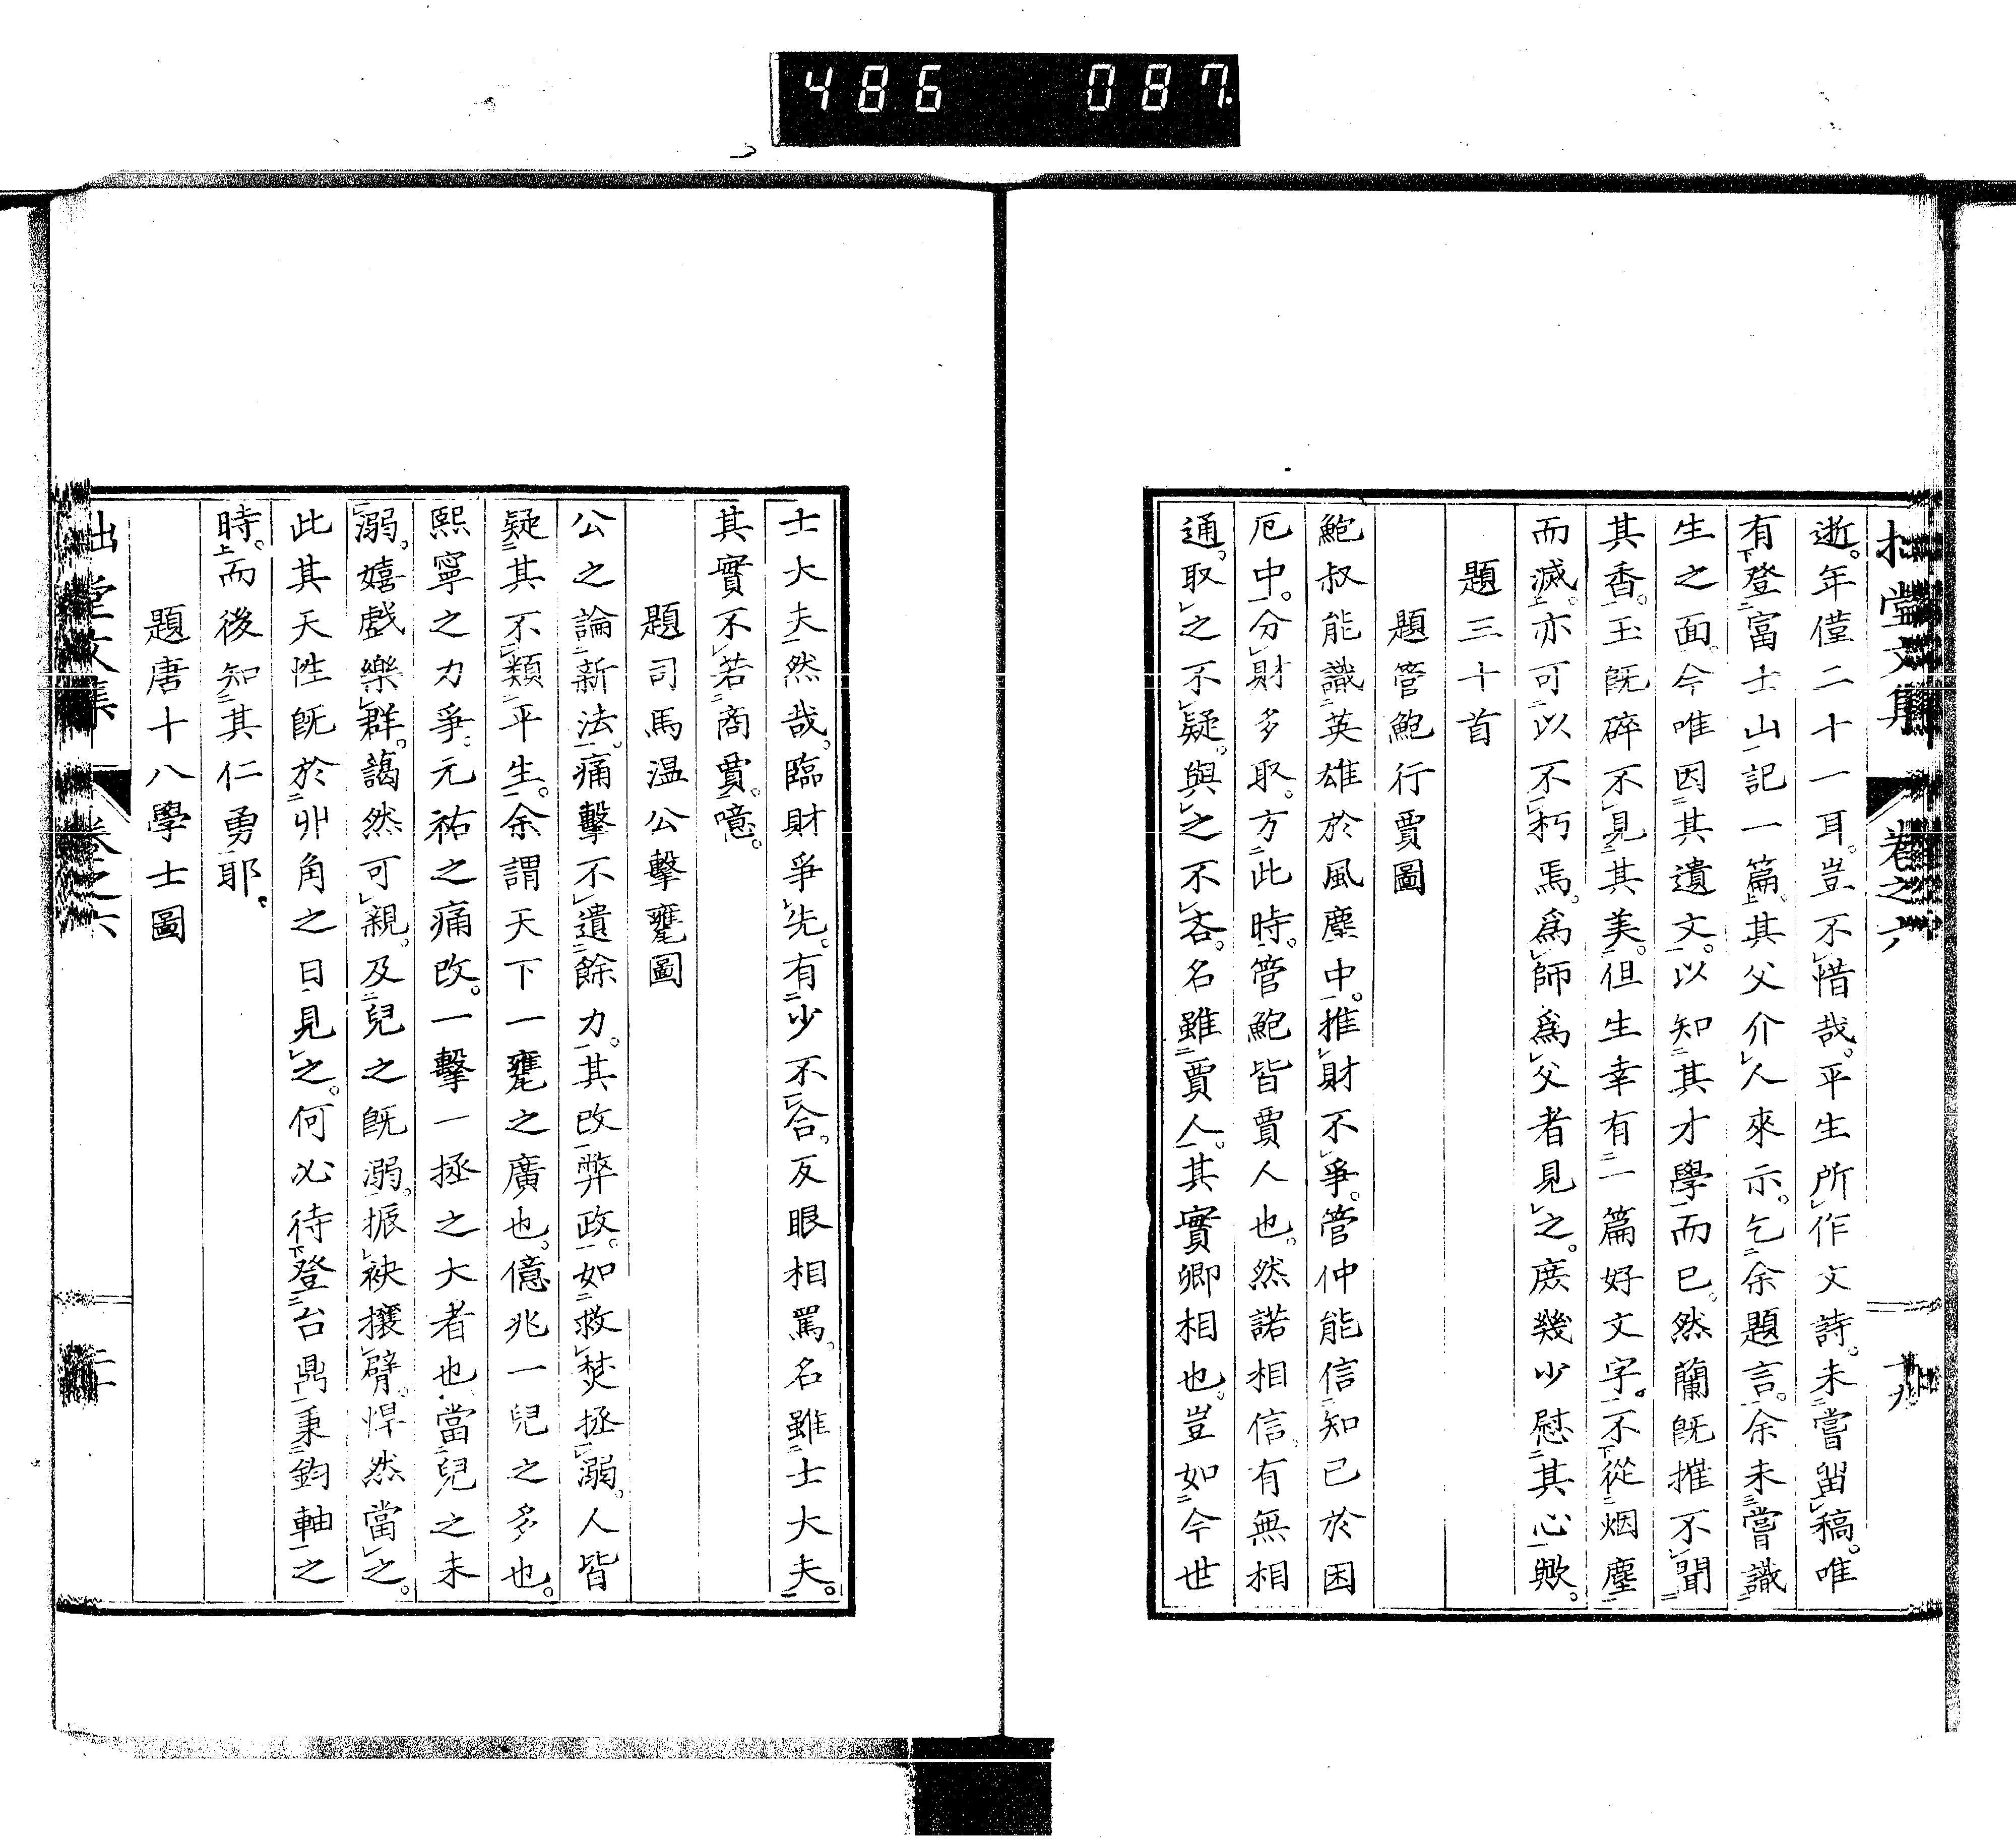 486 087
拙堂文集 卷之六 十九
逝。年僅二十一耳。豈不惜哉。平生所作文詩。未嘗留稿。唯
有登富士山記一篇。其父介人來示。乞余題言。余未嘗識
生之面。今唯因其遺文。以知其才學而已。然蘭既摧不聞
其香。玉既碎不見其美。但生幸有一篇好文字。不從烟塵
而滅。亦可以不朽焉。爲師爲父者見之。庶幾少慰其心歟。
題三十首
題管鮑行賈圖
鮑叔能識英雄於風塵中。推財不爭。管仲能信知己於困
厄中。分財多取。方此時。管鮑皆賈人也。然諾相信。有無相
通。取之不疑。與之不吝。名雖賈人。其實卿相也。豈如今世
士大夫然哉。臨財爭先。有少不合。反眼相罵。名雖士大夫。
其實不若商賈。噫。
題司馬温公擊甕圖
公之論新法。痛擊不遺餘力。其改弊政。如救焚拯溺。人皆
疑其不類平生。余謂天下一甕之廣也。億兆一兒之多也。
熙寧之力爭。元祐之痛改。一擊一拯之大者也。當兒之未
溺。嬉戲樂群。藹然可親。及兒之既溺。振袂攘臂。悍然當之。
此其天性既於丱角之日見之。何必待登台鼎秉鈞軸之
時。而後知其仁勇耶。
題唐十八學士圖
拙堂文集 卷之六